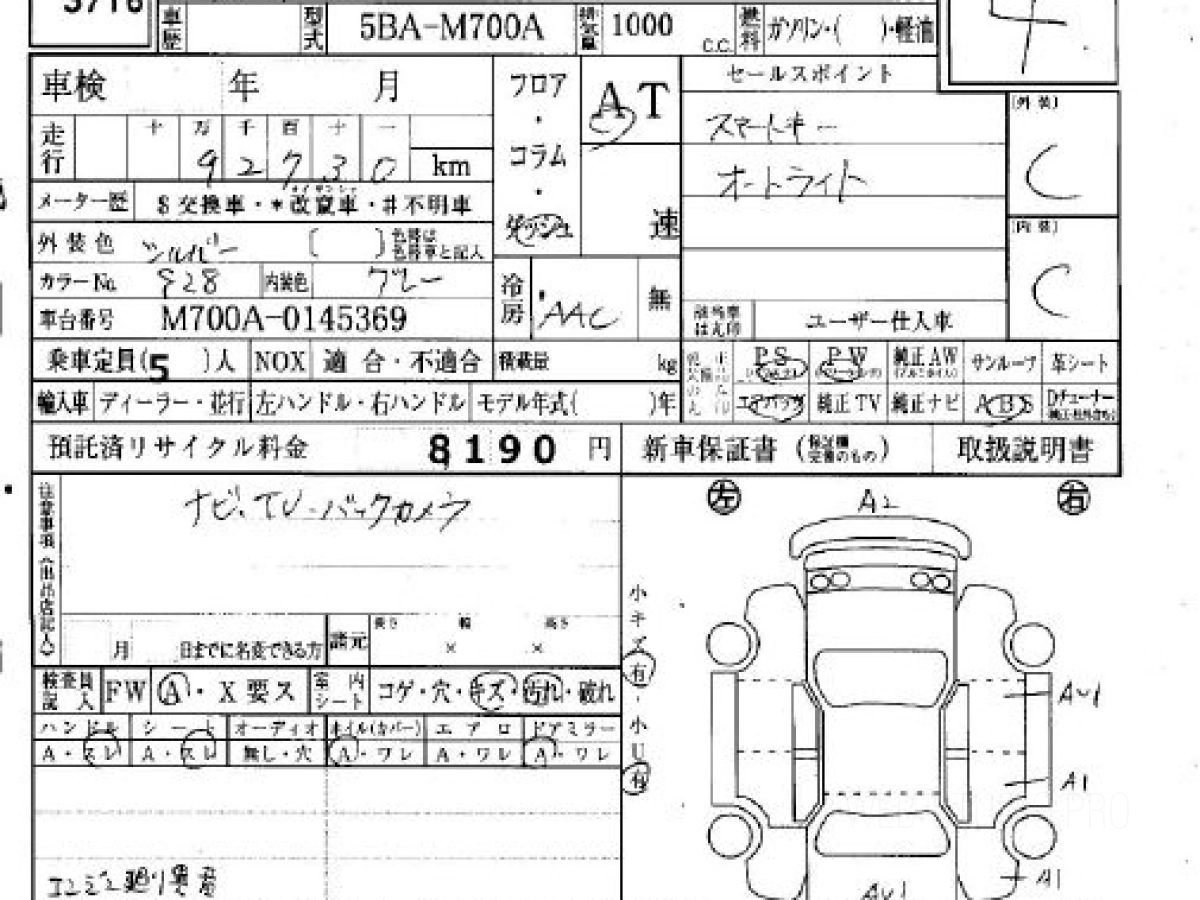 3716
車歴 型式 5BA-M700A 排気量 1000 C.C. 燃料 ガソリン・( )・軽油
車検 年 月 フロア・コラム・ダッシュ AT 速 セールスポイント
スマートキー
オートライト
(外装) C
(内装) C
走行 十 万 千 百 十 一
9 2 7 3 0 km
メーター歴 $交換車・*改竄車・#不明車
外装色 シルバー ( ) 色替は色替車と記入
カラーNo. S28 内装色 グレー 冷房 AAC 無
車台番号 M700A-0145369 該当車は丸印 ユーザー仕入車
乗車定員(5 )人 NOX 適合・不適合 積載量 kg PS PW 純正AW サンルーフ 革シート
輸入車 ディーラー・並行 左ハンドル・右ハンドル モデル年式( )年 エアバッグ 純正TV 純正ナビ ABS Dチューナー
預託済リサイクル料金 8190 円 新車保証書 (保証欄完備のもの) 取扱説明書
注意事項(出品店記入)
ナビ、TV・バックカメラ
月 日までに名変できる方 諸元 長さ × 幅 × 高さ
検査員記入 FW A・X要ス 室内シート コゲ・穴・キズ・汚れ・破れ
ハンドル シート オーディオ ホイル(カバー) エアロ ドアミラー
A・スレ A・スレ 無し・穴 A・ワレ A・ワレ A・ワレ
エンジン廻り異音
左 A2 右
小キズ有・小U有
AU1
A1
A1
AU1